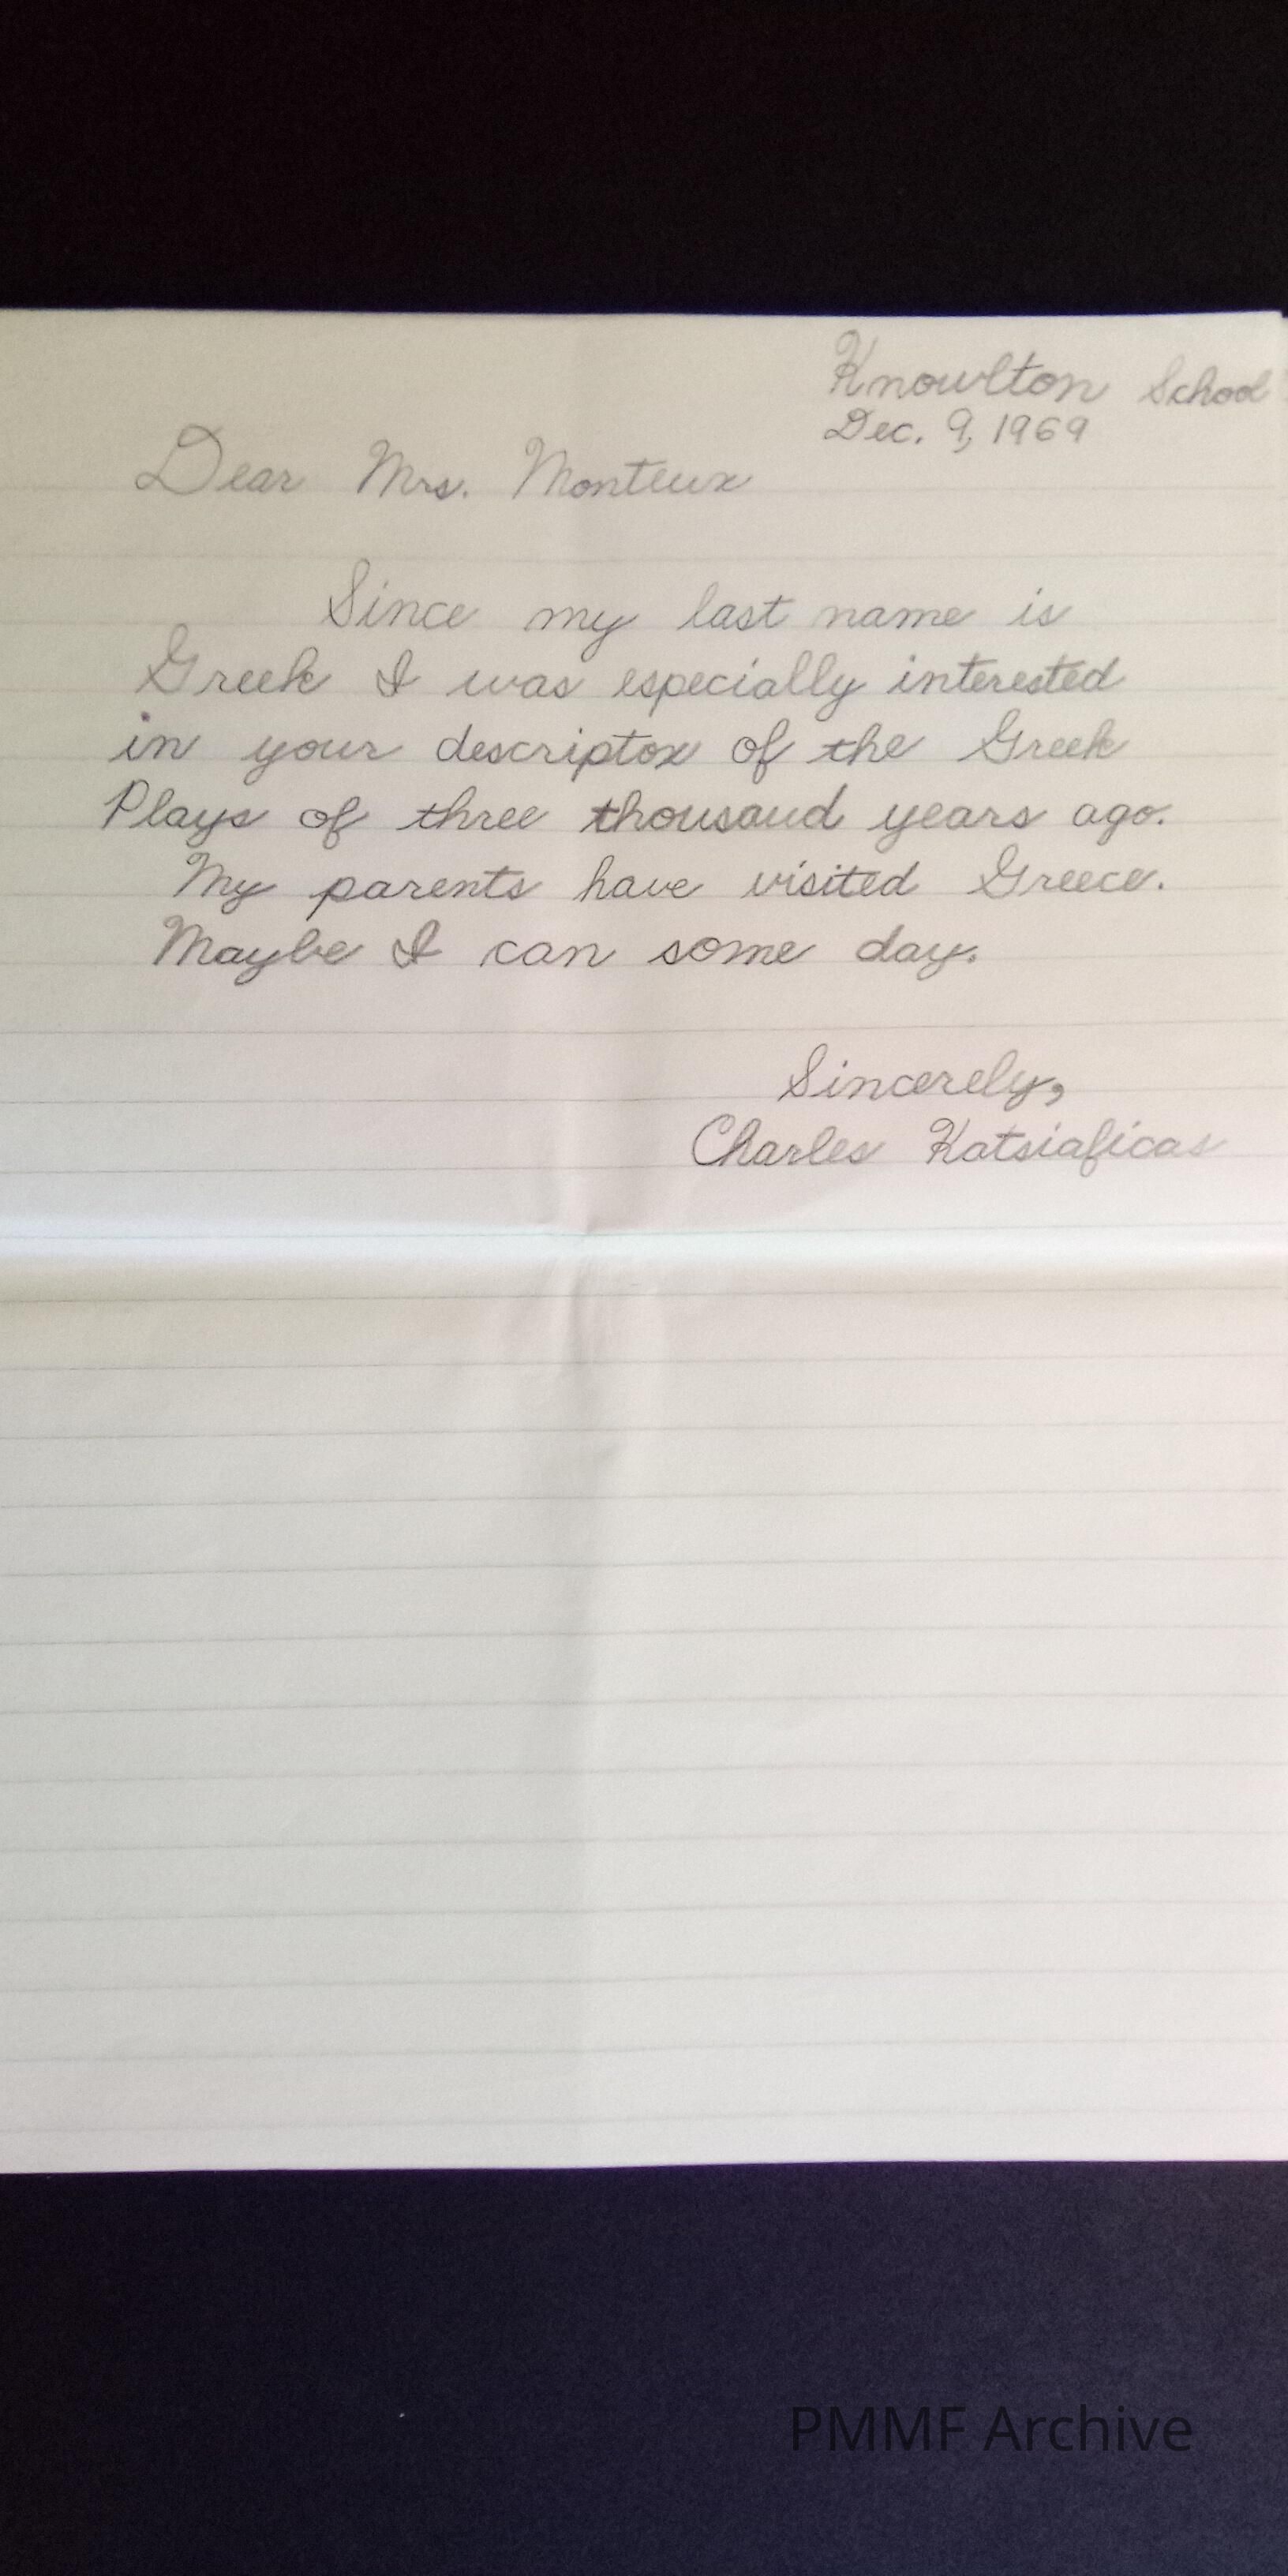 Knowlton School
Dec. 9, 1969
Dear Mrs. Monteux
Since my last name is
Greek I was especially interested
in your descriptox of the Greek
Plays of three thousand years ago.
My parents have visited Greece.
Maybe I can some day.
Sincerely,
Charles Katsiaficas
PMMF Archive